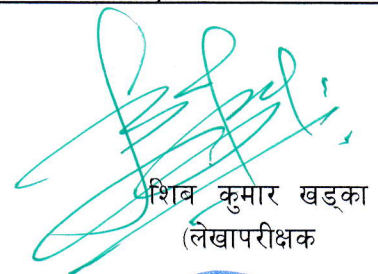 शिब कुमार खड्का
(लेखापरीक्षक